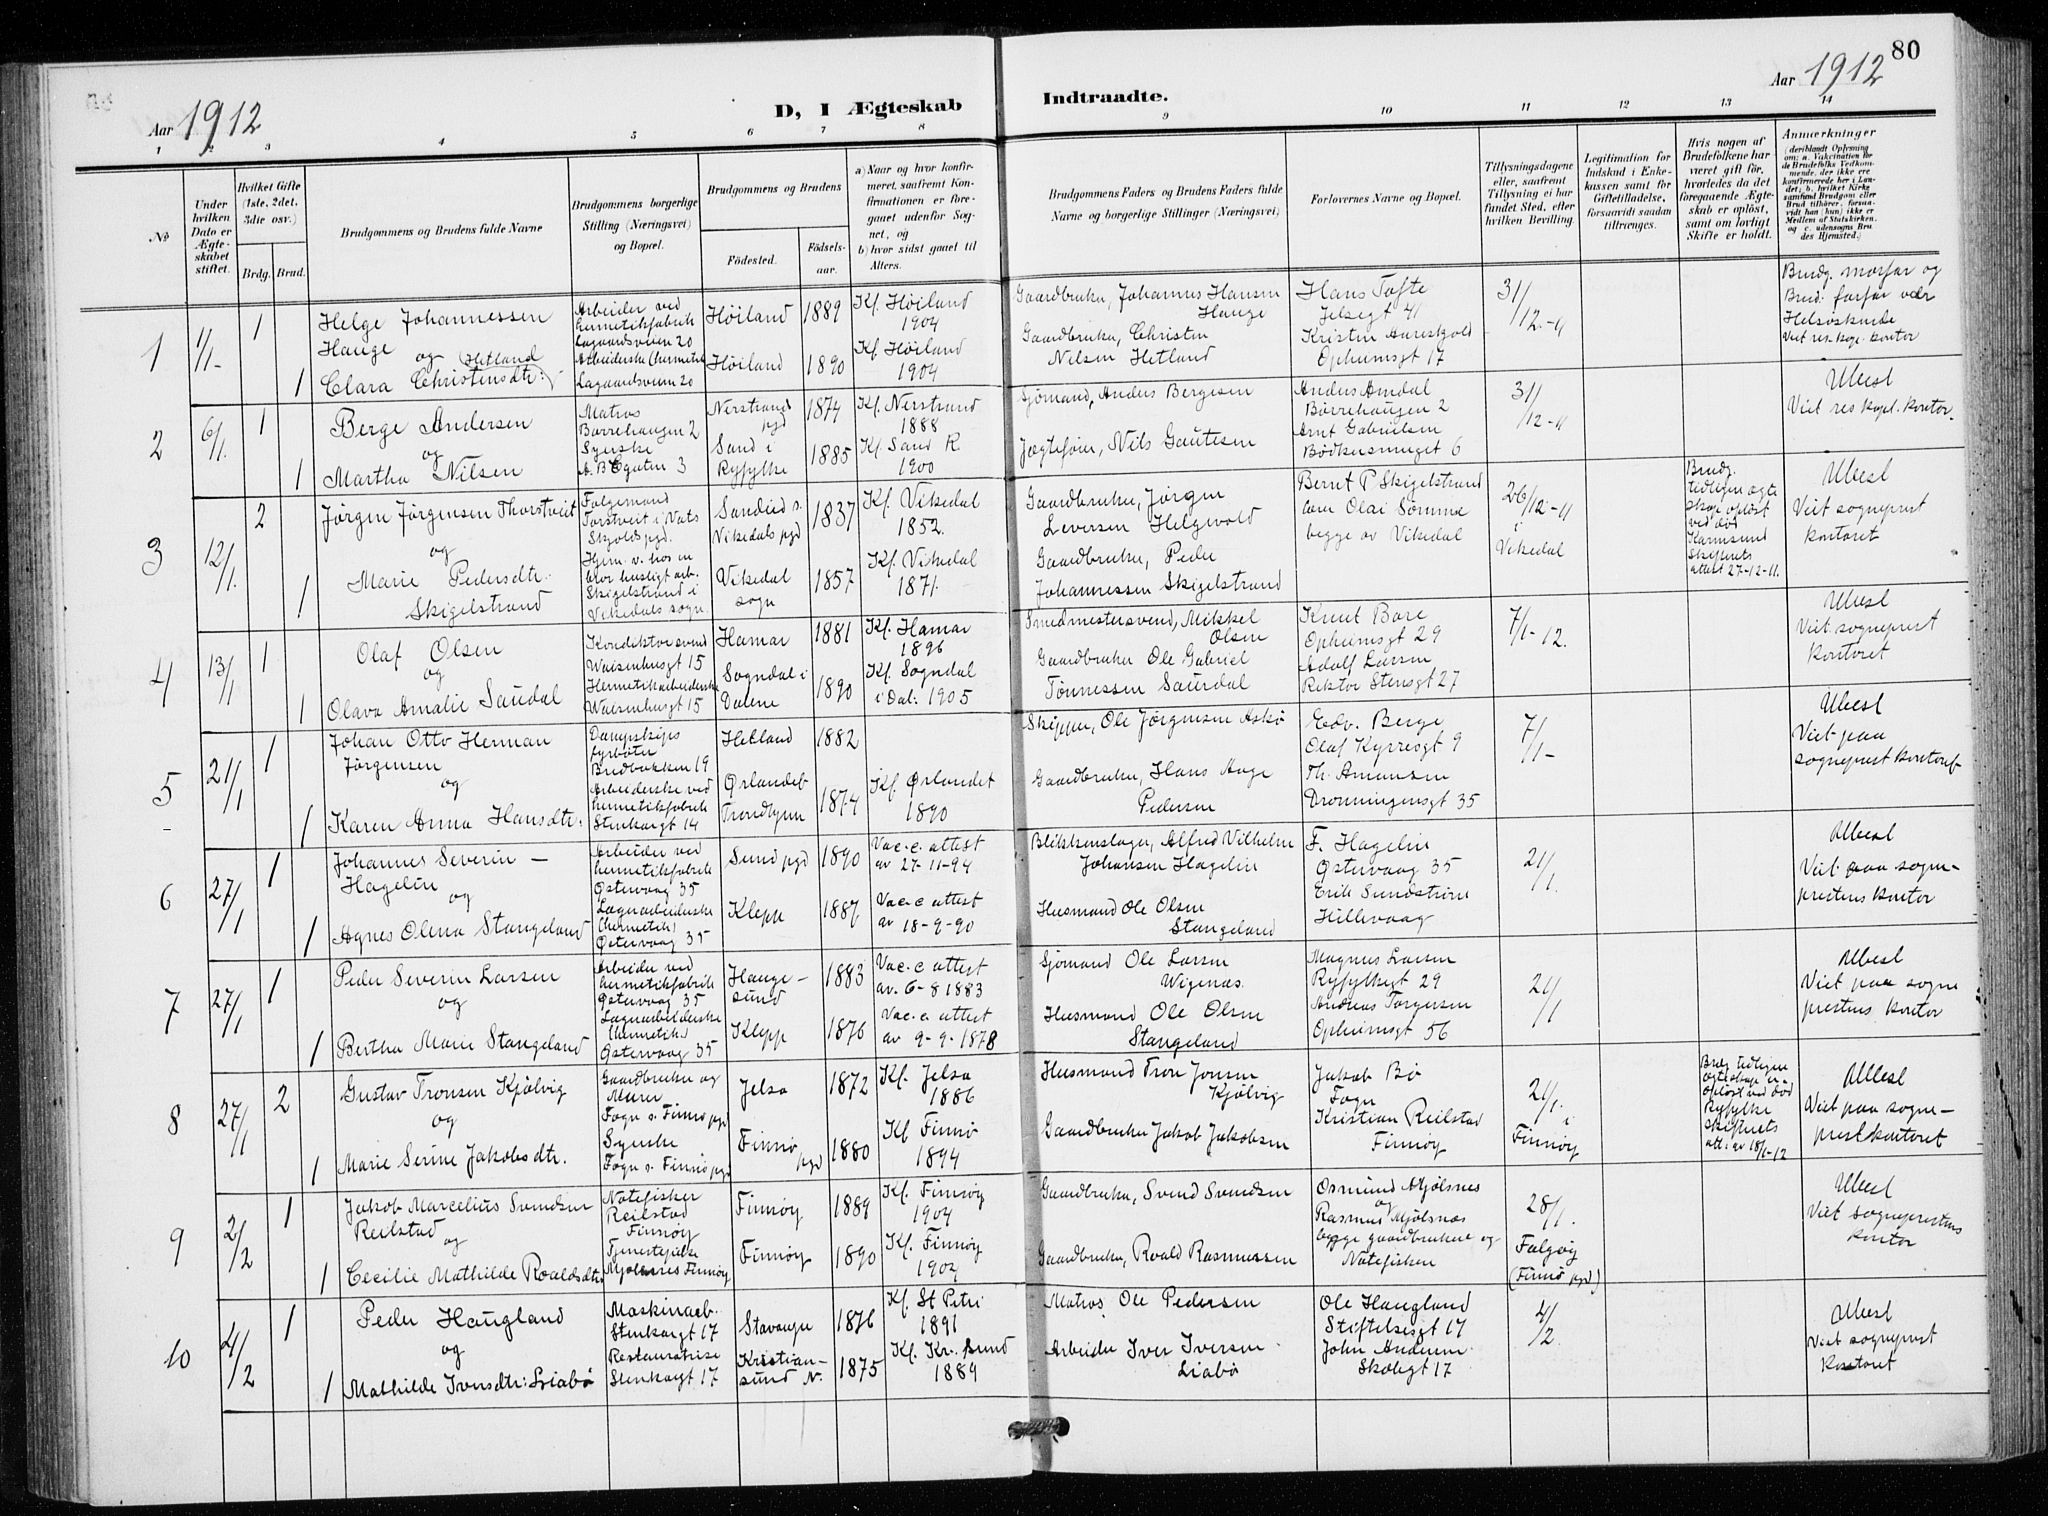 80
Aar 1912
D, I Ægteskab Indtraadte.
Aar 1912
1 2 3 4 5 6 7 8 9 10 11 12 13 14
№
Under hvilken Dato er Ægteskabet stiftet.
Hvilket Gifte (1ste, 2det, 3die osv.)
Brdg. Brud.
Brudgommens og Brudens fulde Navne
Brudgommens borgerlige Stilling (Næringsvei) og Bopæl.
Brudgommens og Brudens
Födested. Födselsaar.
a) Naar og hvor konfirmeret, saafremt Konfirmationen er foregaaet udenfor Sognet, og
b) hvor sidst gaaet til Alters.
Brudgommens Faders og Brudens Faders fulde Navne og borgerlige Stillinger (Næringsvei)
Forlovernes Navne og Bopæl.
Tillysningsdagene eller, saafremt Tillysning ei har fundet Sted, efter hvilken Bevilling
Legitimation for Indskud i Enkekassen samt for Giftetilladelse, forsaavidt saadan tiltrænges.
Hvis nogen af Brudefolkene har været gift för, hvorledes da det foregaaende Ægteskab er oplöst, samt om lovligt Skifte er holdt.
Anmærkninger (deriblandt Oplysning om: a. Vakcination for de Brudefolks Vedkommende, der ikke ere konfirmerede her i Landet; b. hvilket Kirkesamfund Brudgom eller Brud tilhörer, forsaavidt han (hun) ikke er Medlem af Statskirken, og c. udensogns Brudes Hjemsted.)
1
1/1-
1
Helge Johannessen
Hauge
og Hetland
1 Clara Christensdtr.
Arbeider ved
hermetikfabrik
Lagaardsveien 20
Arbeiderske (hermetik
Lagaardsveien 20
Höiland 1889
Kf. Höiland
1904
Höiland 1890
Kf. Höiland
1904
Gaardbruker, Johannes Hansen
Hauge
Gaardbruker, Christen
Nilsen Hetland
Hans Tofte
Jelsegt 41
Kristen Aarestvold
Opheimsgt 17
31/12.-11
Brudg. morfar og
Brud. farfar vær
Helsöskende
Viet res. kap. kontor
2
6/1.
1
Berge Andersen
og
1 Martha Nilsen
Matros
Börrehaugen 2
Syerske
A. B. Cgaten 3
Nerstrand
pgd 1874
Kf. Nerstrand
1888
Sand i
Ryfylke 1885
Kf. Sand R
1900
Sjömand, Anders Bergesen
Jægtefóier, Nils Gautesen
Anders Amdal
Börrehaugen 2
Arnt Gabrielsen
Bödkersmuget 6
31/12-11
Ubesl
Viet res kapel. kontor.
3
12/1.
2
Jörgen Jörgensen Thorstveit
og
1 Marie Pedersdtr.
Skigelstrand
Folgemand
Torstveit i Vats
Skjolds pgd.
Hjem. v. hos en
bror husligt arb.
Skigelstrand i
Vikedals sogn.
Sandeid s.
Vikedals pgd 1837
Kf. Vikedal
1852.
Vikedal
sogn 1857
Kf. Vikedal
1871.
Gaardbruker, Jörgen
Leversen Helgevold
Gaardbruker, Peder
Johannessen Skigelstrand
Bernt P Skigelstrand
Olai Sömme
begge av Vikedal
26/12-11
i
Vikedal
Brudg.
tidligere ægte
skap oplöst
ved död
Karmsund
Skifterets
attest 27-12-11.
Ubesl
Viet sogneprest
kontoret
4
13/1
1
Olaf Olsen
og
1 Olava Amalie Saurdal
Konditorsvend
Waisenhusgt 15
Hermetikarbeiderske
Waisenhusgt 15
Hamar 1881
Kf. Hamar
1896
Sogndal i
Dalene 1890
Kf. Sogndal
i Dal: 1905
Smedmestersvend, Mikkel
Olsen
Gaardbruker Ole Gabriel
Tönnessen Saurdal
Knut Bore
Opheimsgt 29
Adolf Larsen
Rektor Stensgt 27
7/1-12.
Ubesl
Viet. sogneprest
kontoret
5
21/1
1
Johan Otto Herman
Jörgensen
og
1 Karen Anna Hansdtr.
Dampskips
fyrböter
Bredbakken 19
Arbeiderske ved
hermetikfabrik
Stenkargt 14
Hetland 1882
Örlandet
Trondhjem 1874
Kf. Örlandet
1890
Skipper, Ole Jörgensen Askö
Gaardbruker, Hans Aage
Pedersen
Edv. Berge
Olaf Kyrresgt 9
Th. Amensen
Dronningensgt 35
7/1-
Ubesl
Viet paa
sogneprest kontoret
6
27/1
1
Johannes Severin -
Hagelin
og
1 Agnes Olena Stangeland
Arbeider ved
hermetikfabrik
Östervaag 35
Lagerarbeiderske
(hermetik)
Östervaag 35
Sund pgd 1890
Vac. c. attest
av 27-11-94
Klepp 1887
Vac. c attest
av 18-9-90
Blikkenslager, Alfred Vilhelm
Johansen Hagelin
Husmand Ole Olsen
Stangeland
F. Hagelin
Östervaag 35
Erik Sundström
Hillevaag
21/1.
Ubesl
Viet. paa sogne-
prestens kontor
7
27/1
1
Peder Severin Larsen
og
1 Bertha Marie Stangeland
Arbeider ved
hermetikfabrik
Östervaag 35
Lagerarbeiderske
(hermetik)
Östervaag 35
Hauge-
sund 1883
Vac. c attest
av. 6-8 1883
Klepp 1876
Vac. c. attest
av 9-9-1878
Sjömand Ole Larsen
Wigenæs.
Husmand Ole Olsen
Stangeland
Magnus Larsen
Ryfylkegt 29
Andreas Torgersen
Opheimsgt 56
21/1
Ubesl
Viet paa sogne
prestens kontor
8
27/1
2
Gustav Tronsen Kjölvig
og
1 Marie Serine Jakobsdtr.
Gaardbruker og
Murer
Fogn s. Finnö pgd
Syerske
Fogn s. Finnö pgd
Jelsa 1872
Kf. Jelsa
1886
Finnö
pgd 1880
Kf Finnö
1894
Husmand Tron Jonsen
Kjölvig
Gaardbruker Jakob Jakobsen
Jakob Bö
Fogn
Kristian Reilstad
Finnöy
21/1. i
Finnöy
Brdg tidligere
egteskap er
oplöst ved död
Ryfylke
skifterets
att: av 18/1-12
Ubesl
Viet paa sogne-
prestkontoret
9
2/2
1
Jakob Marcelius Svendsen
Reilstad
og
1 Cecilie Mathilde Roaldsdtr.
Notefisker
Reilstad
Finnöy
Tjenestepike
Mjölsnes Finnöy
Finnöy 1889
Kf. Finnöy
1904
Finnöy 1890
Kf. Finnöy
1904
Gaardbruker, Svend Svendsen
Gaardbruker, Roald Rasmussen
Osmund Mjölsnes
og
Rasmus Mjölsnæs
begge gaardbrukere og
Notefiskere
28/1.
Falgöy
(Finnö pgd)
Ubesl
Viet sogneprestens
kontor
10
4/2
1
Peder Haugland
og
1 Mathilde Iversdtr: Liabö
Maskinarb.
Stenkargt 17
Restauratrise
Stenkargt 17
Stavanger 1876
Kf. St Petri
1891
Kristian-
sund N. 1875
Kf. Kr. sund
1889
Matros Ole Pedersen
Arbeider Iver Iversen
Liabö
Ole Haugland
Stiftelsesgt 17
John Andersen
Skolegt 17
4/2.
Ubesl
Viet sogneprest
kontoret